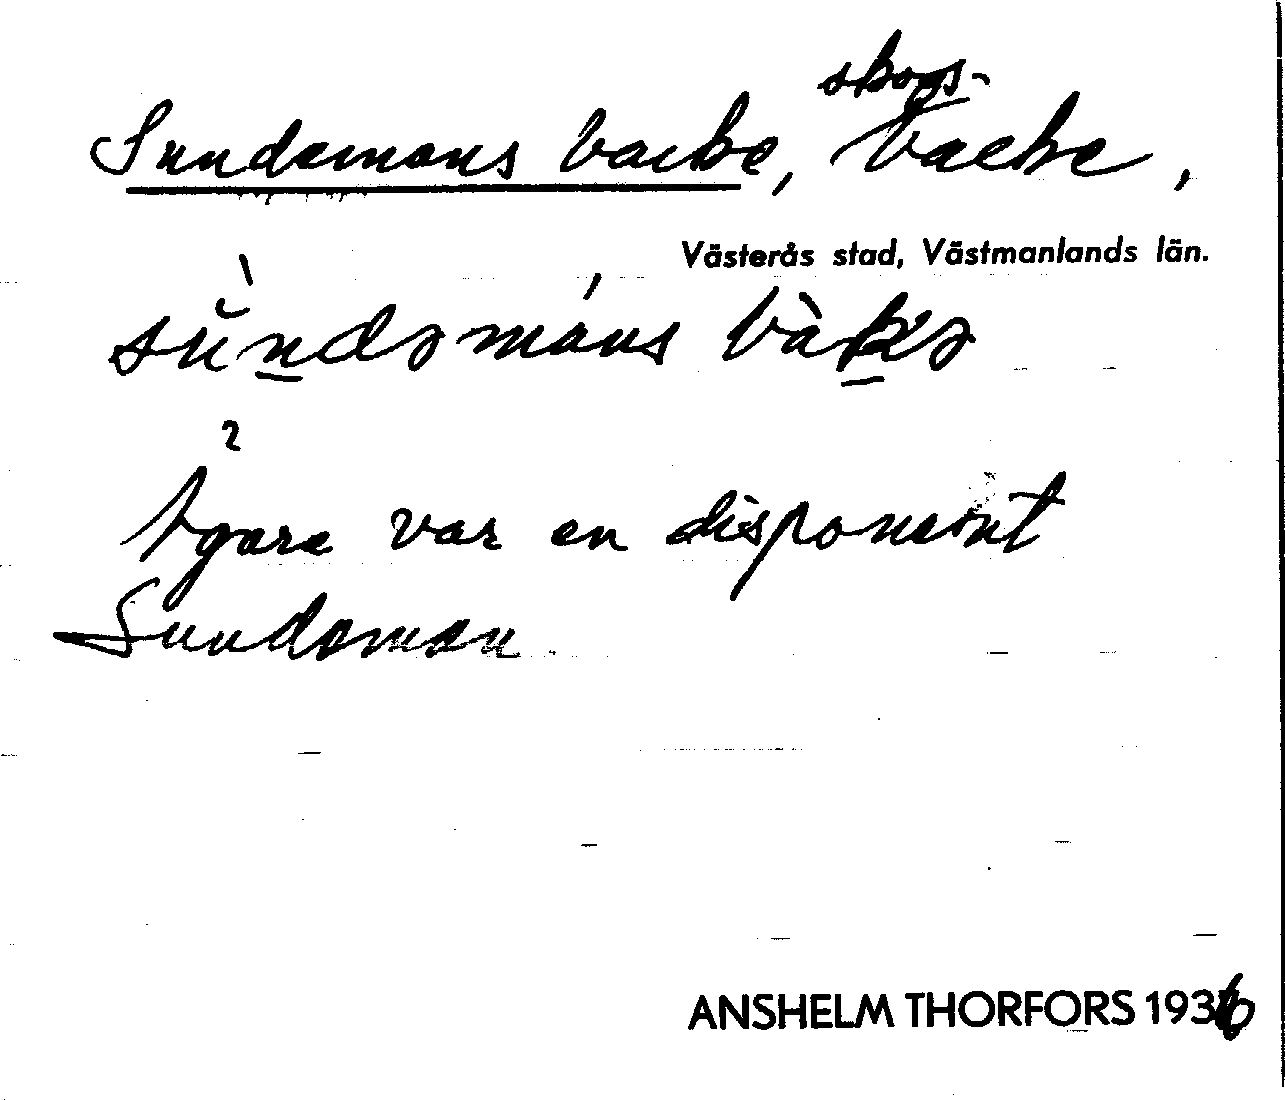 Sundemans backe, skogsbacke,
Västerås stad, Västmanlands län.
sùndəmáns bàkə
Ägare var en disponent
Sundeman
ANSHELM THORFORS 1936